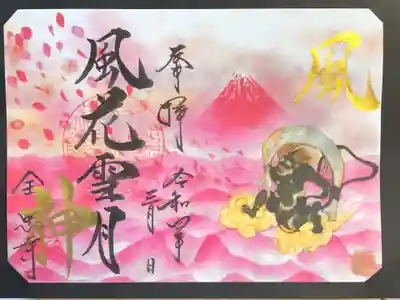 風
奉拝
令和四年
三月 日
風花雪月
神
全忠寺